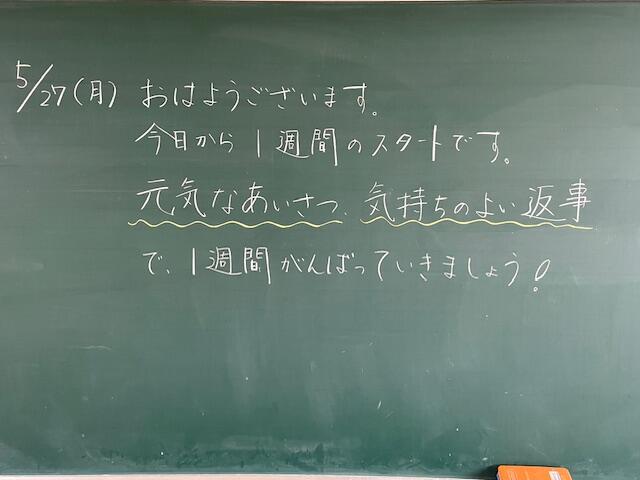 5/27(月) おはようございます。
今日から1週間のスタートです。
元気なあいさつ、気持ちのよい返事
で、1週間がんばっていきましょう!